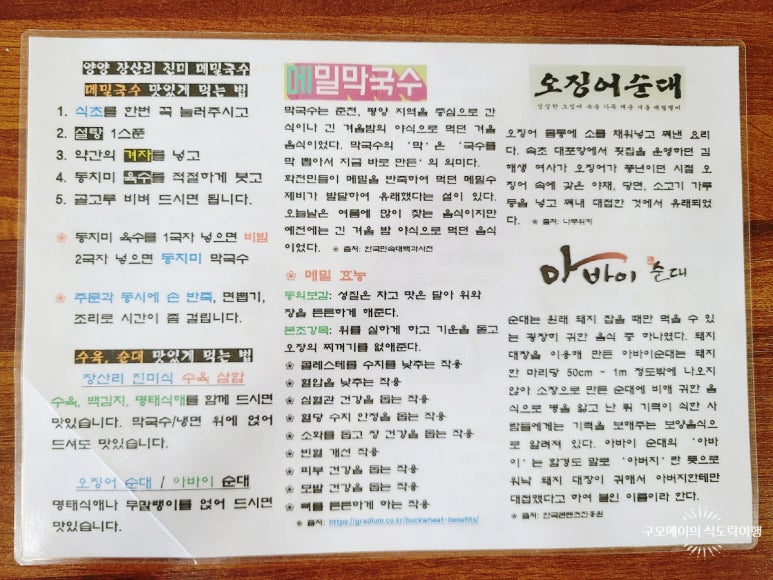 양양 장산리 진미 메밀국수
메밀국수 맛있게 먹는 법
1. 식초를 한번 꾹 눌러주시고
2. 설탕 1스푼
3. 약간의 겨자를 넣고
4. 동치미 육수를 적절하게 붓고
5. 골고루 비벼 드시면 됩니다.
❀ 동치미 육수를 1국자 넣으면 비빔
2국자 넣으면 동치미 막국수
❀ 주문과 동시에 손 반죽, 면뽑기,
조리로 시간이 좀 걸립니다.
수육, 순대 맛있게 먹는 법
장산리 진미식 수육 삼합
수육, 백김치, 명태식해를 함께 드시면
맛있습니다. 막국수/냉면 위에 얹어
드셔도 맛있습니다.
오징어 순대 / 아바이 순대
명태식해나 무말랭이를 얹어 드시면
맛있습니다.
메밀막국수
막국수는 춘천, 평양 지역을 중심으로 간
식이나 긴 겨울밤의 야식으로 먹던 겨울
음식이었다. 막국수의 '막'은 '국수를
막 뽑아서 지금 바로 만든'의 의미다.
화전민들이 메밀을 반죽하여 먹던 메밀수
제비가 발달하여 유래했다는 설이 있다.
오늘날은 여름에 많이 찾는 음식이지만
예전에는 긴 겨울 밤 야식으로 먹던 음식
이었다. ❀ 출처: 한국민속대백과사전
❀ 메밀 효능
동의보감: 성질은 차고 맛은 달아 위와
장을 튼튼하게 해준다.
본초강목: 위를 실하게 하고 기운을 돋고
오장의 찌꺼기를 없애준다.
❀ 콜레스테롤 수치를 낮추는 작용
❀ 혈압을 낮추는 작용
❀ 심혈관 건강을 돕는 작용
❀ 혈당 수치 안정을 돕는 작용
❀ 소화를 돕고 장 건강을 돕는 작용
❀ 빈혈 개선 작용
❀ 피부 건강을 돕는 작용
❀ 모발 건강을 돕는 작용
❀ 뼈를 튼튼하게 하는 작용
❀ 출처: https://gradium.co.kr/buckwheat-benefits/
오징어순대
오징어 몸통에 소를 채워넣고 쪄낸 요리
다. 속초 대포항에서 횟집을 운영하던 김
해생 여사가 오징어가 풍년이던 시절 오
징어 속에 갖은 야채, 당면, 소고기 가루
등을 넣고 쪄내 대접한 것에서 유래되었
다. ❀ 출처: 나무위키
아바이 순대
순대는 원래 돼지 잡을 때만 먹을 수 있
는 굉장히 귀한 음식 중 하나였다. 돼지
대창을 이용해 만든 아바이순대는 돼지
한 마리당 50cm ~ 1m 정도밖에 나오지
않아 소창으로 만든 순대에 비해 귀한 음
식으로 병을 앓고 난 뒤 기력이 쇠한 사
람들에게는 기력을 보해주는 보양음식으
로 알려져 있다. 아바이 순대의 '아바
이'는 함경도 말로 '아버지'란 뜻으로
워낙 돼지 대창이 귀해서 아버지한테만
대접했다고 하여 붙인 이름이라 한다.
❀ 출처: 한국콘텐츠진흥원
구오메이의 식도락여행